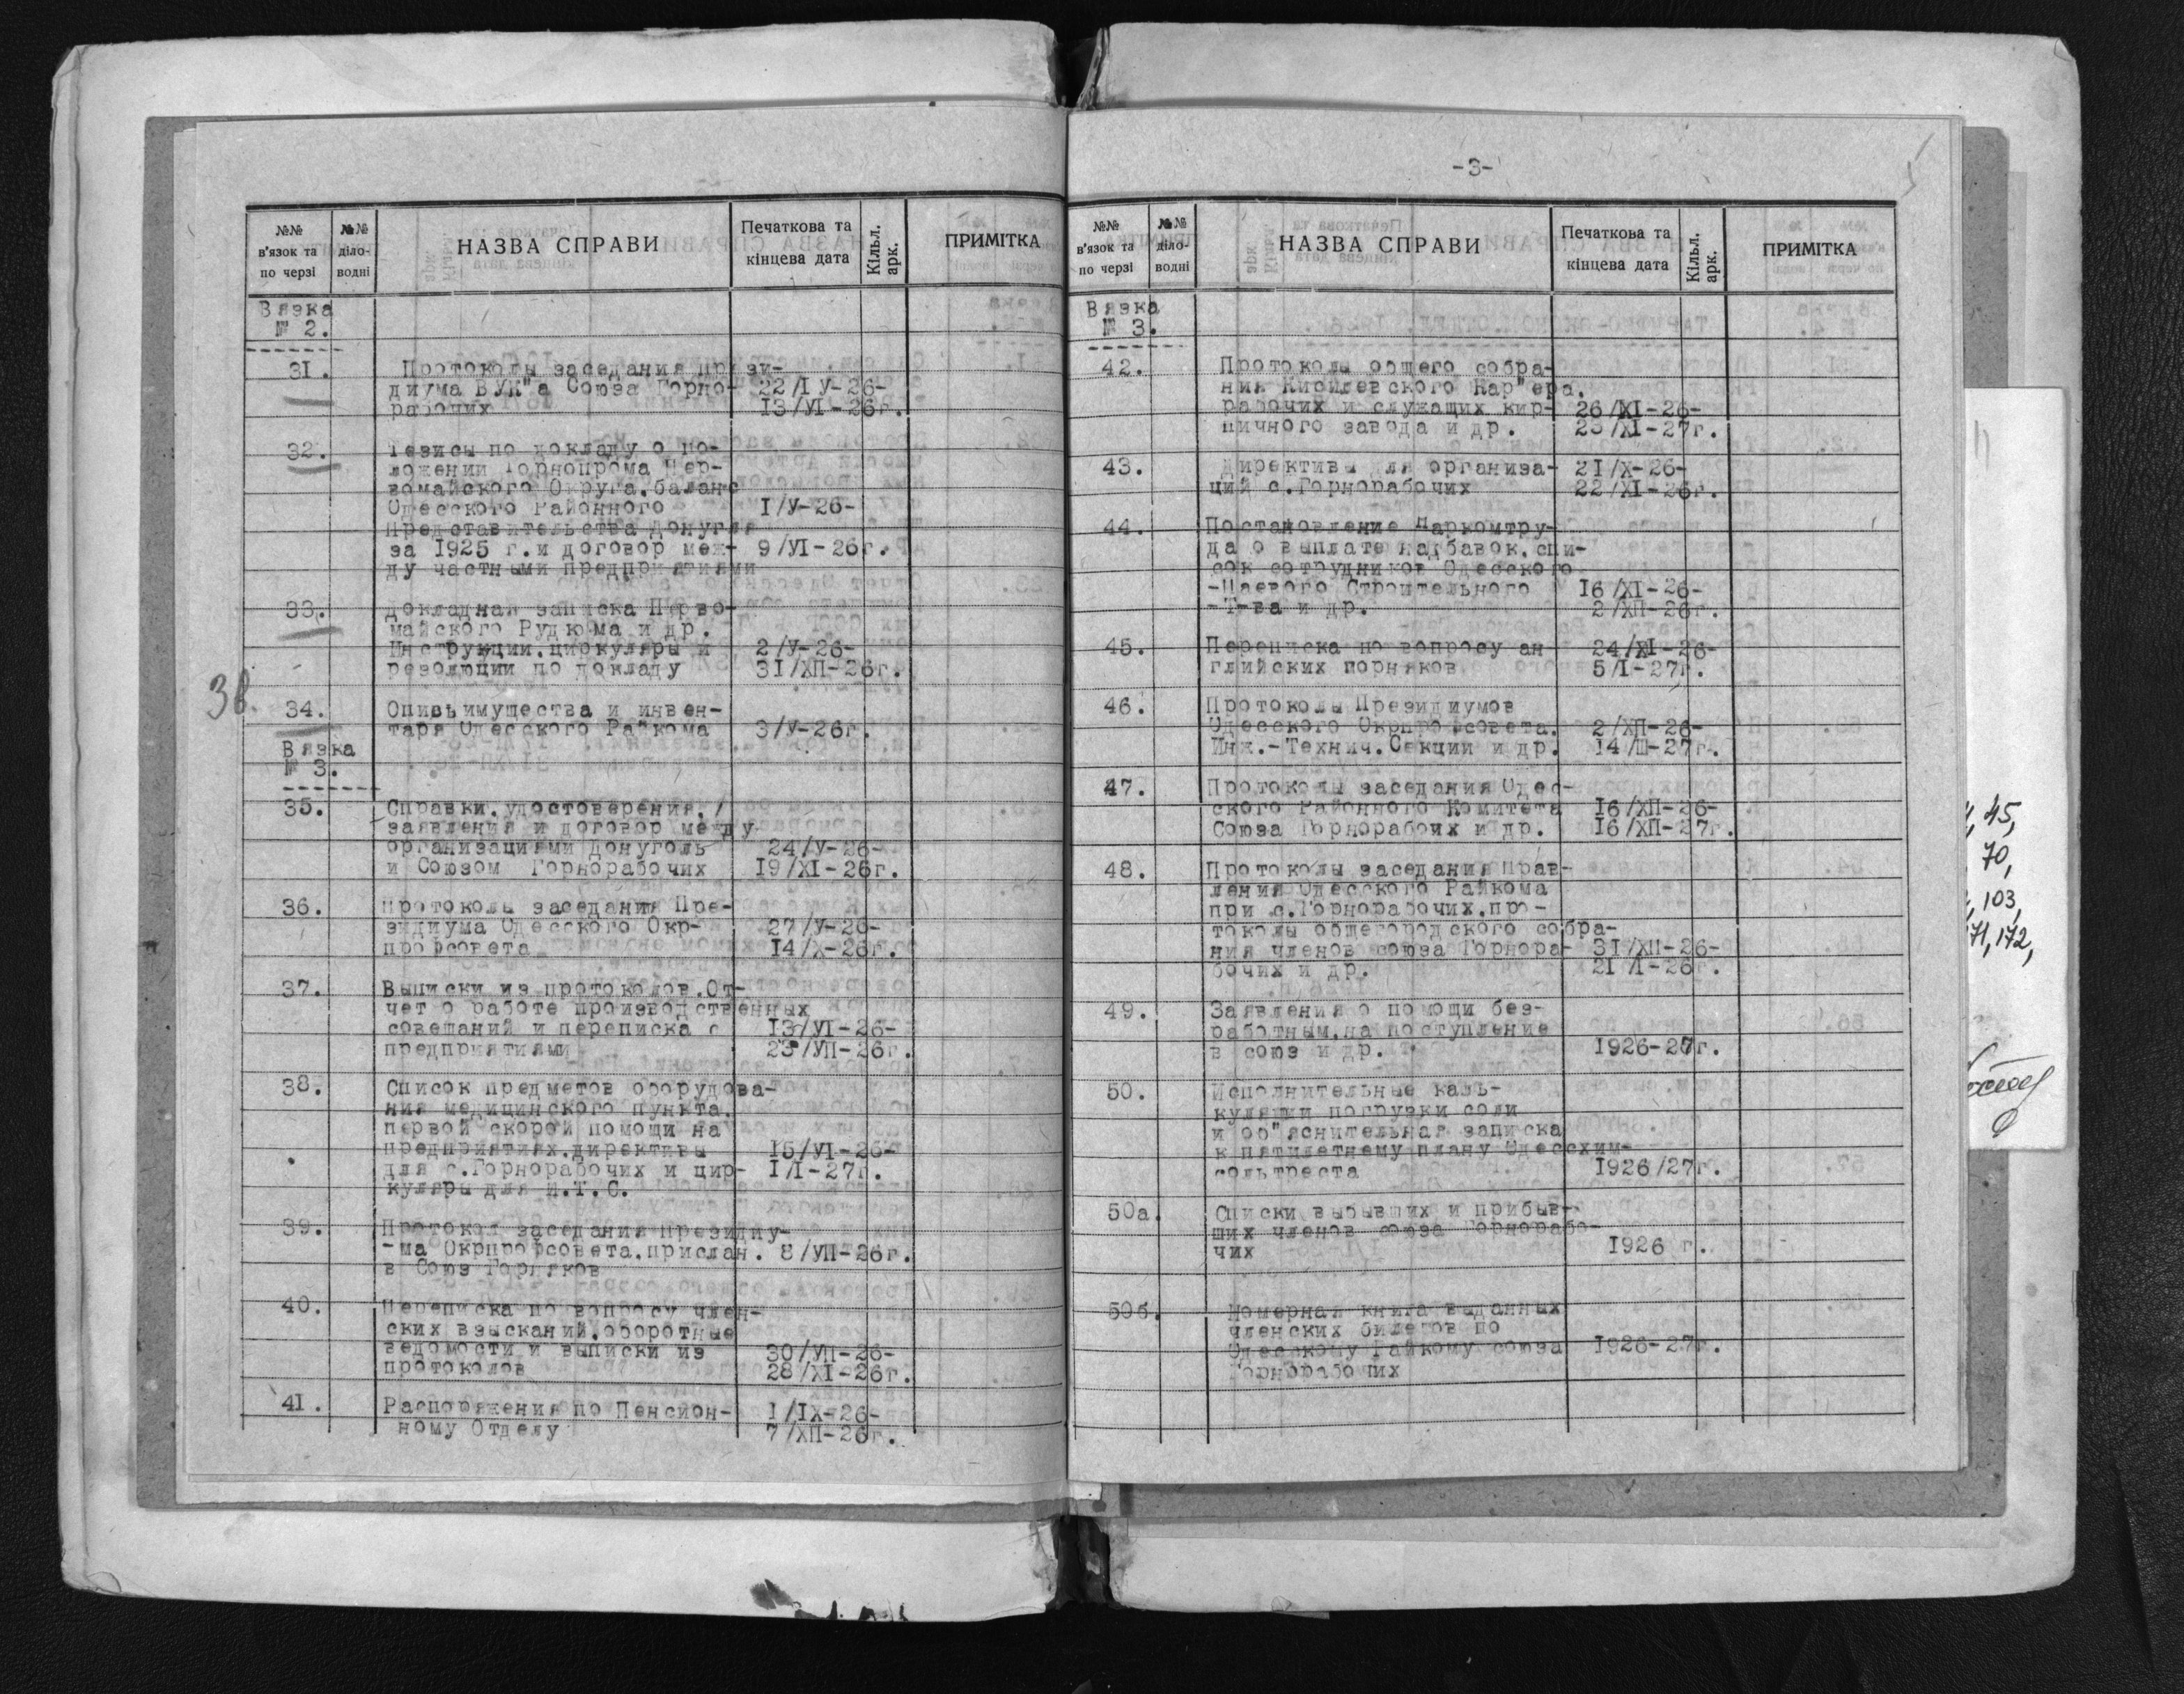 №№
в'язок та
по черзі
№№
діло-
водні
НАЗВА СПРАВИ
Печаткова та
кінцева дата
Кільл.
арк.
ПРИМІТКА
Вязка
№ 2.
31.
Протоколы заседания прези-
диума ВУК"а Союза Горно-
рабочих
22/IУ-26-
13/УI-26г.
32.
Тезисы по докладу о по-
ложении Горнопрома Пер-
вомайского Округа.баланс
Одесского Районного
Представительства Донугля
за 1925 г.и договор меж-
ду частными предприятиями
I/У-26-
9/УI-26г.
33.
Докладная записка Перво-
майского Рудкома и др.
Инструкции.циркуляры и
резолюции по докладу
2/У-26-
31/ХП-26г.
34.
Опись имущества и инвен-
таря Одесского Райкома
3/У-26г.
Вязка
№ 3.
35.
Справки.удостоверения,
заявления и договор между
организациями Донуголь
и Союзом Горнорабочих
24/У-26-
19/XI-26г.
36.
Протоколы заседания Пре-
зидиума Одесского Окр-
профсовета
27/У-26-
14/Х-26г.
37.
Выписки из протоколов.От-
чет о работе производственных
совещаний и переписка с
предприятиями
13/УI-26-
23/УП-26г.
38.
Список предметов оборудова-
ния медицинского пункта.
первой скорой помощи на
предприятиях.директивы
для с.Горнорабочих и цир-
куляры для И.Т.С.
15/УI-26-
I/I-27г.
39.
Протокол заседания Президиу-
-ма Окрпрофсовета.прислан.
в Союз Горняков
8/УП-26г.
40.
Переписка по вопросу член-
ских взысканий.оборотные
ведомости и выписки из
протоколов
30/УП-26-
28/XI-26г.
41.
Распоряжения по Пенсион-
ному Отделу
I/IX-26-
7/ХП-26г.
-3-
№№
в'язок та
по черзі
№№
діло-
водні
НАЗВА СПРАВИ
Печаткова та
кінцева дата
Кільл.
арк.
ПРИМІТКА
Вязка
№ 3.
42.
Протоколы общего собра-
ния Кирилевского Кар"ера.
рабочих и служащих кир-
пичного завода и др.
26/XI-26-
23/XI-27г.
43.
Директивы для организа-
ций с.Горнорабочих
21/Х-26-
22/XI-26г.
44.
Постановление Наркомтру-
да о выплате надбавок.спи-
сок сотрудников Одесского
-Паевого Строительного
-Т-ва и др.
16/XI-26-
2/ХП-26г.
45.
Переписка по вопросу ан
глийских горняков
24/XI-26-
5/I-27г.
46.
Протоколы Президиумов
Одесского Окрпрофсовета.
Инж.-Технич.Секции и др.
2/ХП-26-
14/Ш-27г.
47.
Протоколы заседания Одес-
ского Районного Комитета
Союза Горнорабоих и др.
16/ХП-26-
16/ХП-27г.
48.
Протоколы заседания Прав-
ления Одесского Райкома
при с.Горнорабочих.про-
токолы общегородского собра-
ния членов союза Горнора-
бочих и др.
31/ХП-26-
21/I-26г.
49.
Заявления о помощи без-
работным.на поступление
в союз и др.
1926-27г.
50.
Исполнительные каль-
куляции погрузки соли
и об"яснительная записка
к пятилетнему плану Одессхим-
сольтреста
1926/27г.
50а.
Списки выбывших и прибыв-
ших членов союза Горнорабо-
чих
1926 г.
50б.
Номерная книга выданных
членских билетов по
Одесскому Райкому союза
Горнорабочих
1926-27г.
45,
70,
103,
71, 172,